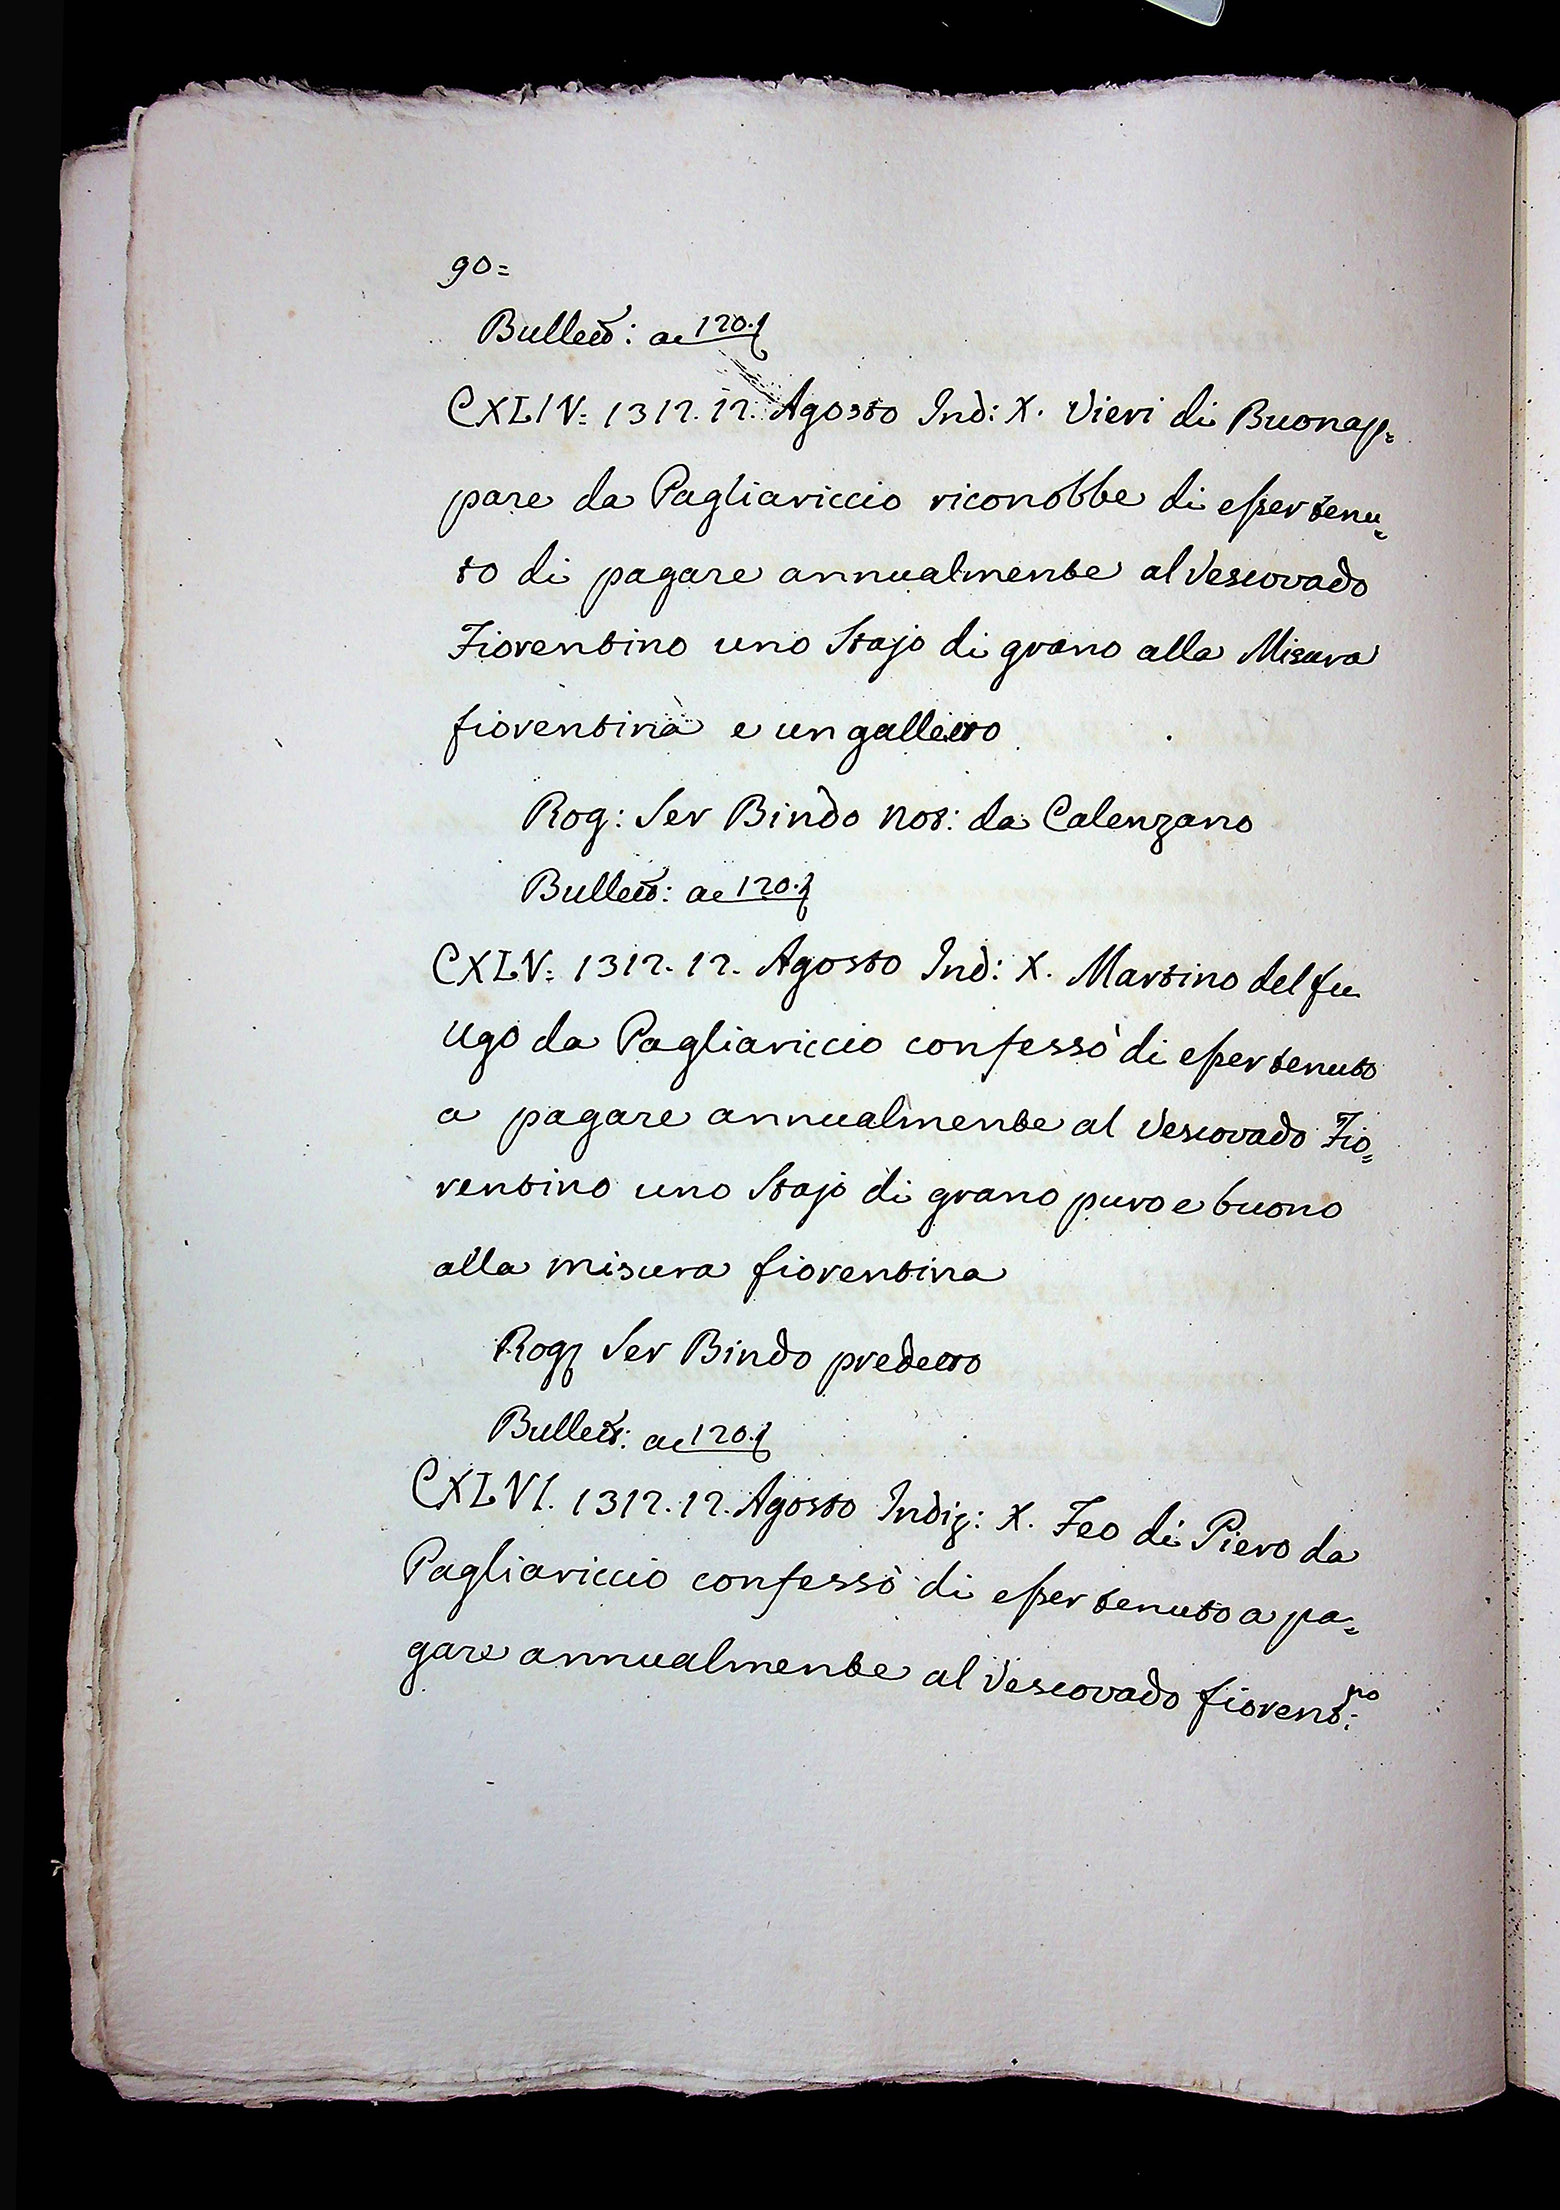 90=
Bullett: ac 120.
CXLIV: 1312. 12. Agosto Ind: X. Vieri di Buonap=
pare da Pagliariccio riconobbe di esser tenu=
to di pagare annualmente al Vescovado
Fiorentino uno Stajo di grano alla Misura
fiorentina e un galletto
Rog: Ser Bindo Not: da Calenzano
Bullett: ac 120.
CXLV: 1312. 12. Agosto Ind: X. Martino del fu
Ugo da Pagliariccio confessò di esser tenuto
a pagare annualmente al Vescovado Fio=
rentino uno Stajo di grano puro e buono
alla misura fiorentina
Rog: Ser Bindo predetto
Bullett: ac 120.
CXLVI. 1312. 12. Agosto Indiz: X. Feo di Piero da
Pagliariccio confessò di esser tenuto a pa=
gare annualmente al Vescovado fiorent:no